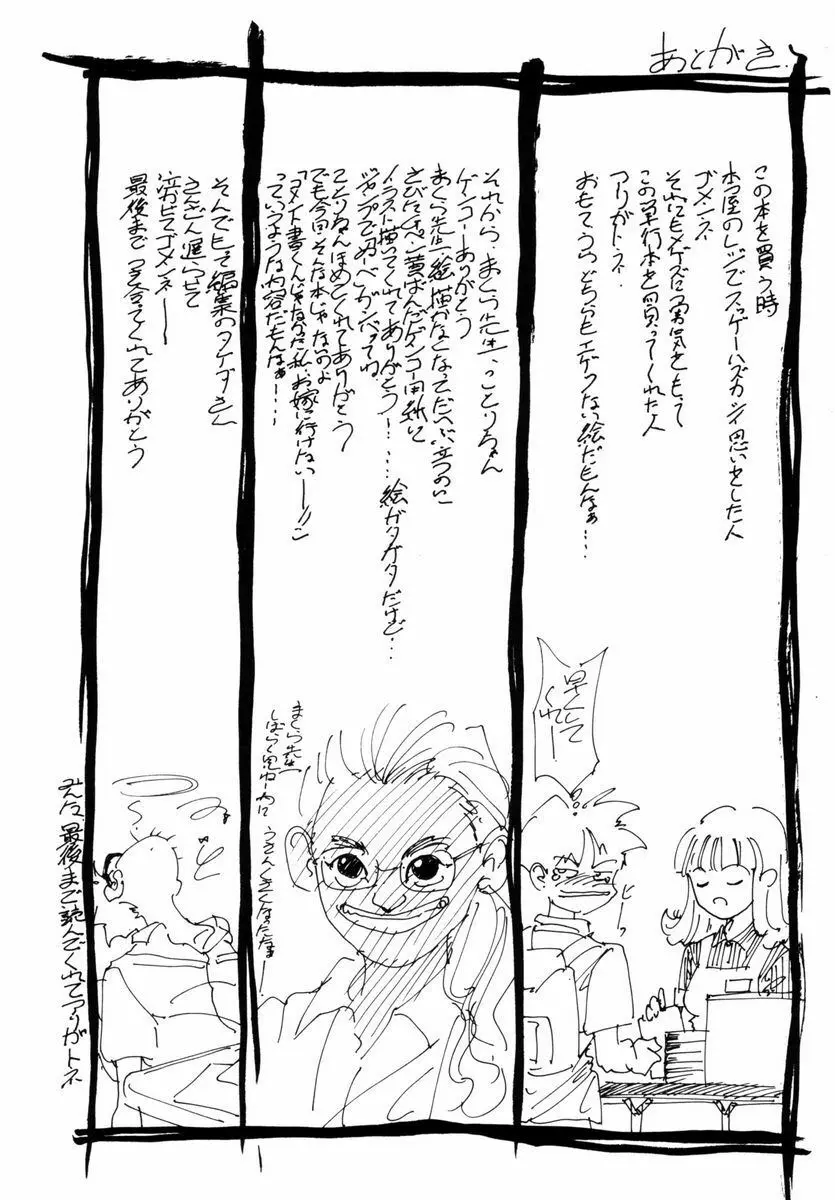 あとがき
この本を買う時
本屋のレジでスッゲーハズカシイ思いをした人
ゴメンネ
それにもメゲズに勇気をもって
この単行本を買ってくれた人
アリガトネ
おもてうらどちらもエゲツない絵だもんなぁ…
早くしてくれー
それから、まくら先生、ことりちゃん
ゲンコーありがとう
まくら先生 絵描かなくなってだいぶ立つのに
さびたGペン 黄ばんだゲンコー用紙に
イラスト描いてくれてありがとう…… 絵がガタガタだけど…
ジャンプでぬ~べ~がンバってね
ことりちゃんほめてくれてありがとう
でも今回そんな本じゃないのよ
「コメント書くんじゃなかった私、お嫁に行けないー!!」
っていうような内容だもんなぁ…
まくら先生
しばらく見ねー内に うさんくさくなったなぁー
そんでもって編集のタケダさん
さんざん遅らせて
泣かせてゴメンネー
最後までつき合ってくれてありがとう
みんな、最後まで読んでくれてアリガトネ